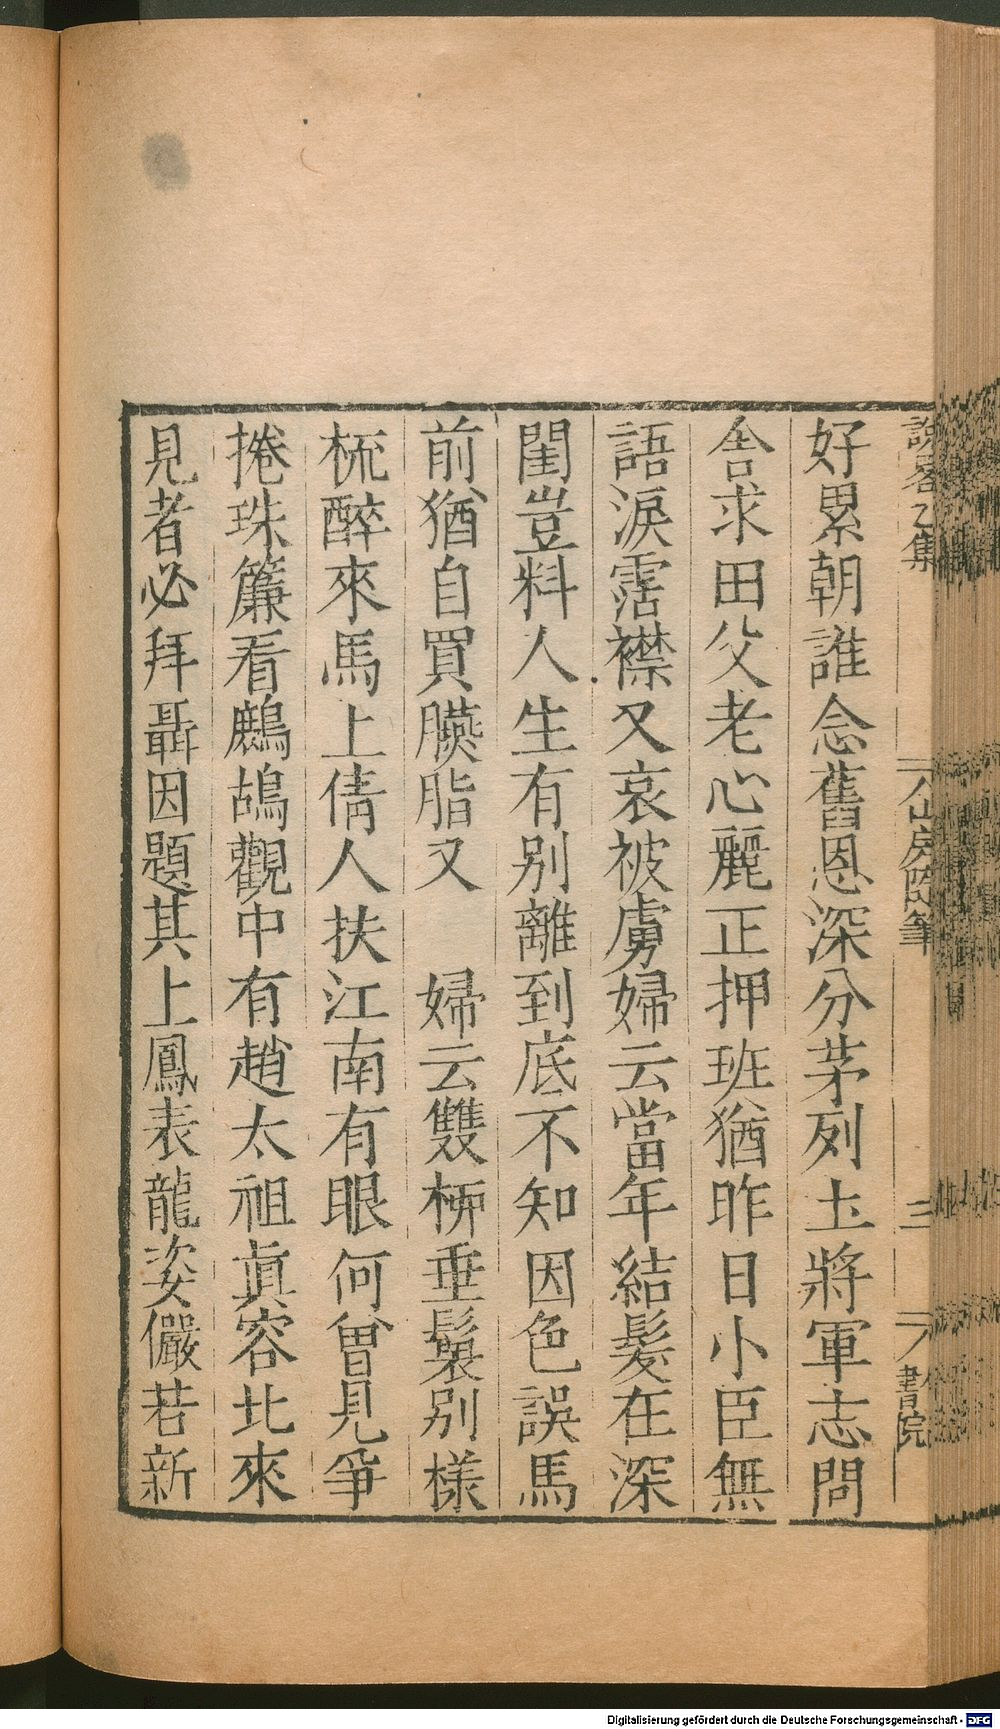 好累朝誰念舊恩深分茅列土將軍志問
舎求田父老心麗正押班猶昨日小臣無
語淚霑襟又哀被虜婦云當年結髮在深
閨豈料人生有別離到底不知因色誤馬
前猶自買臙脂又 婦云雙柳垂鬟別樣
梳醉來馬上倩人扶江南有眼何曾見爭
捲珠簾看鷓鴣觀中有趙太祖眞容北來
見者必拜聶因題其上鳳表龍姿儼若新
說畧乙集
山房隨筆
三
書院
Digitalisierung gefördert durch die Deutsche Forschungsgemeinschaft - DFG